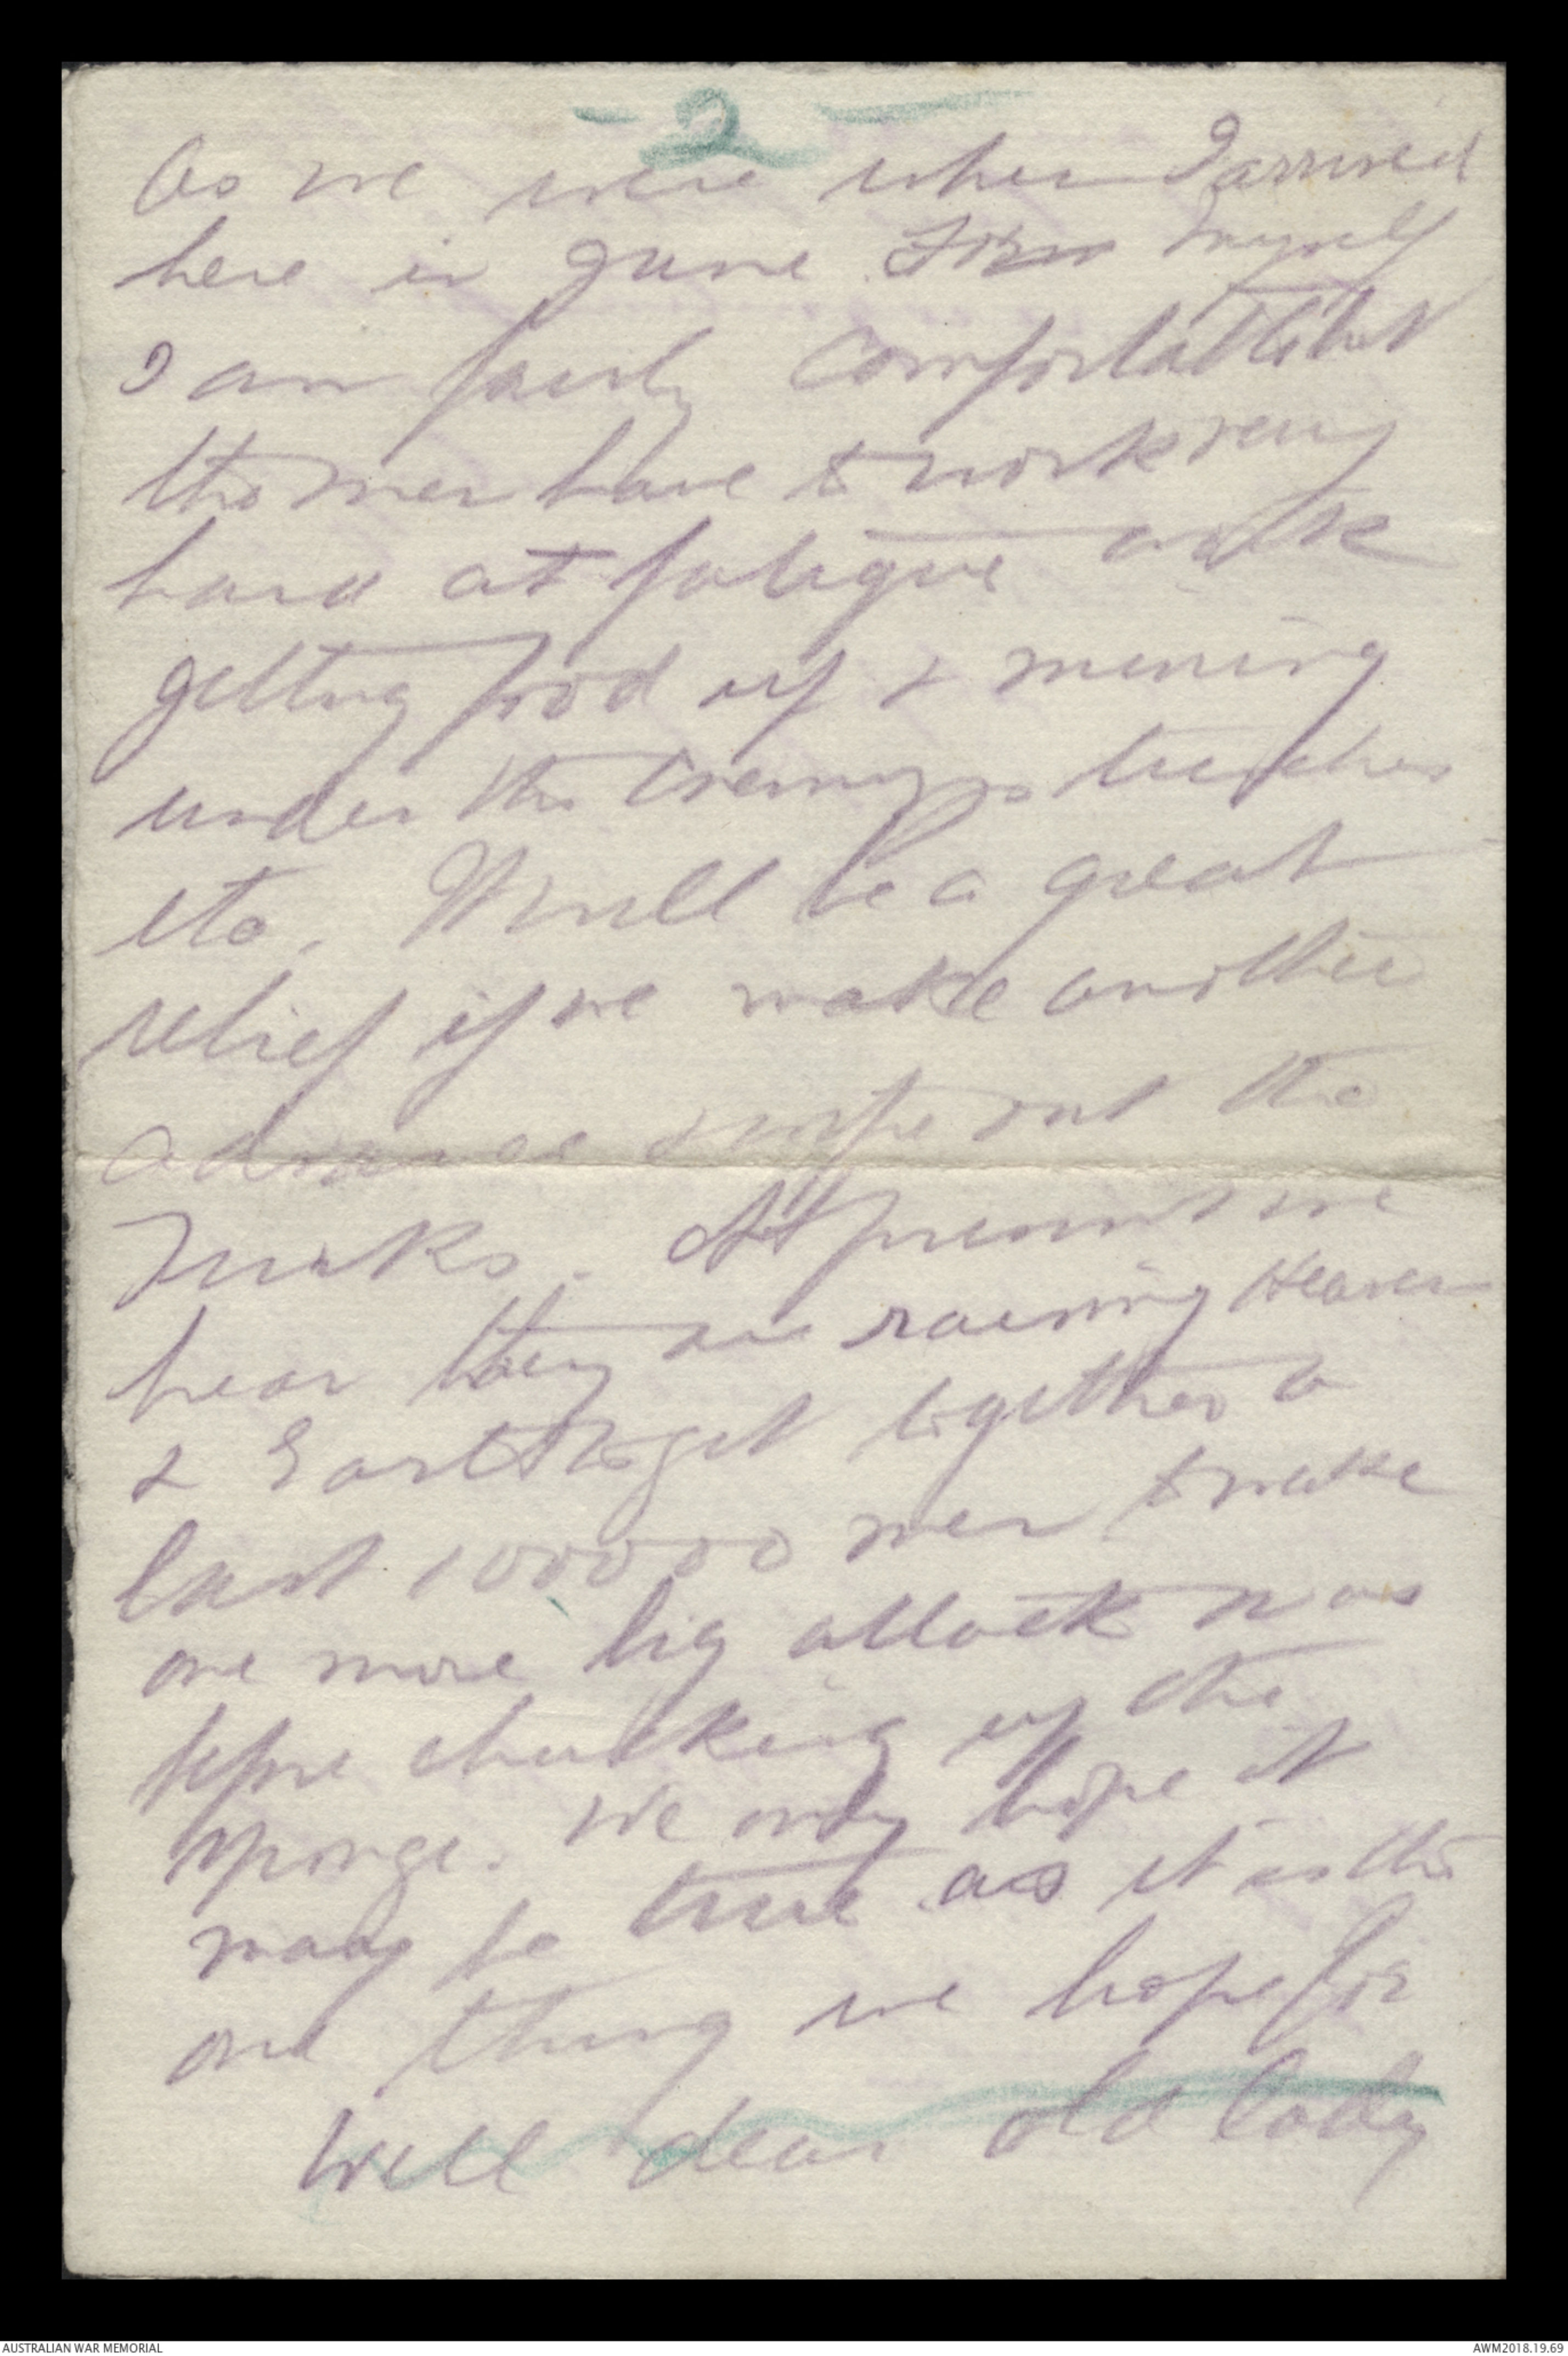 - 2 -
As we were when I arrived
here in June. For myself
I am fairly comfortable but
the men have to work very
hard at fatigue work
getting food up & mining
under the enemys trenches
etc. Will be a great
relief if we make another
advance & wipe out the
Turks. At present we
hear they are raising Heaven
& Earth to get together a
last 100000 men to make
one more big attack
before chucking up the
sponge. We only hope it
may be true as it is the
one thing we hope for
Well dear old lady
AUSTRALIAN WAR MEMORIAL
AWM2018.19.69